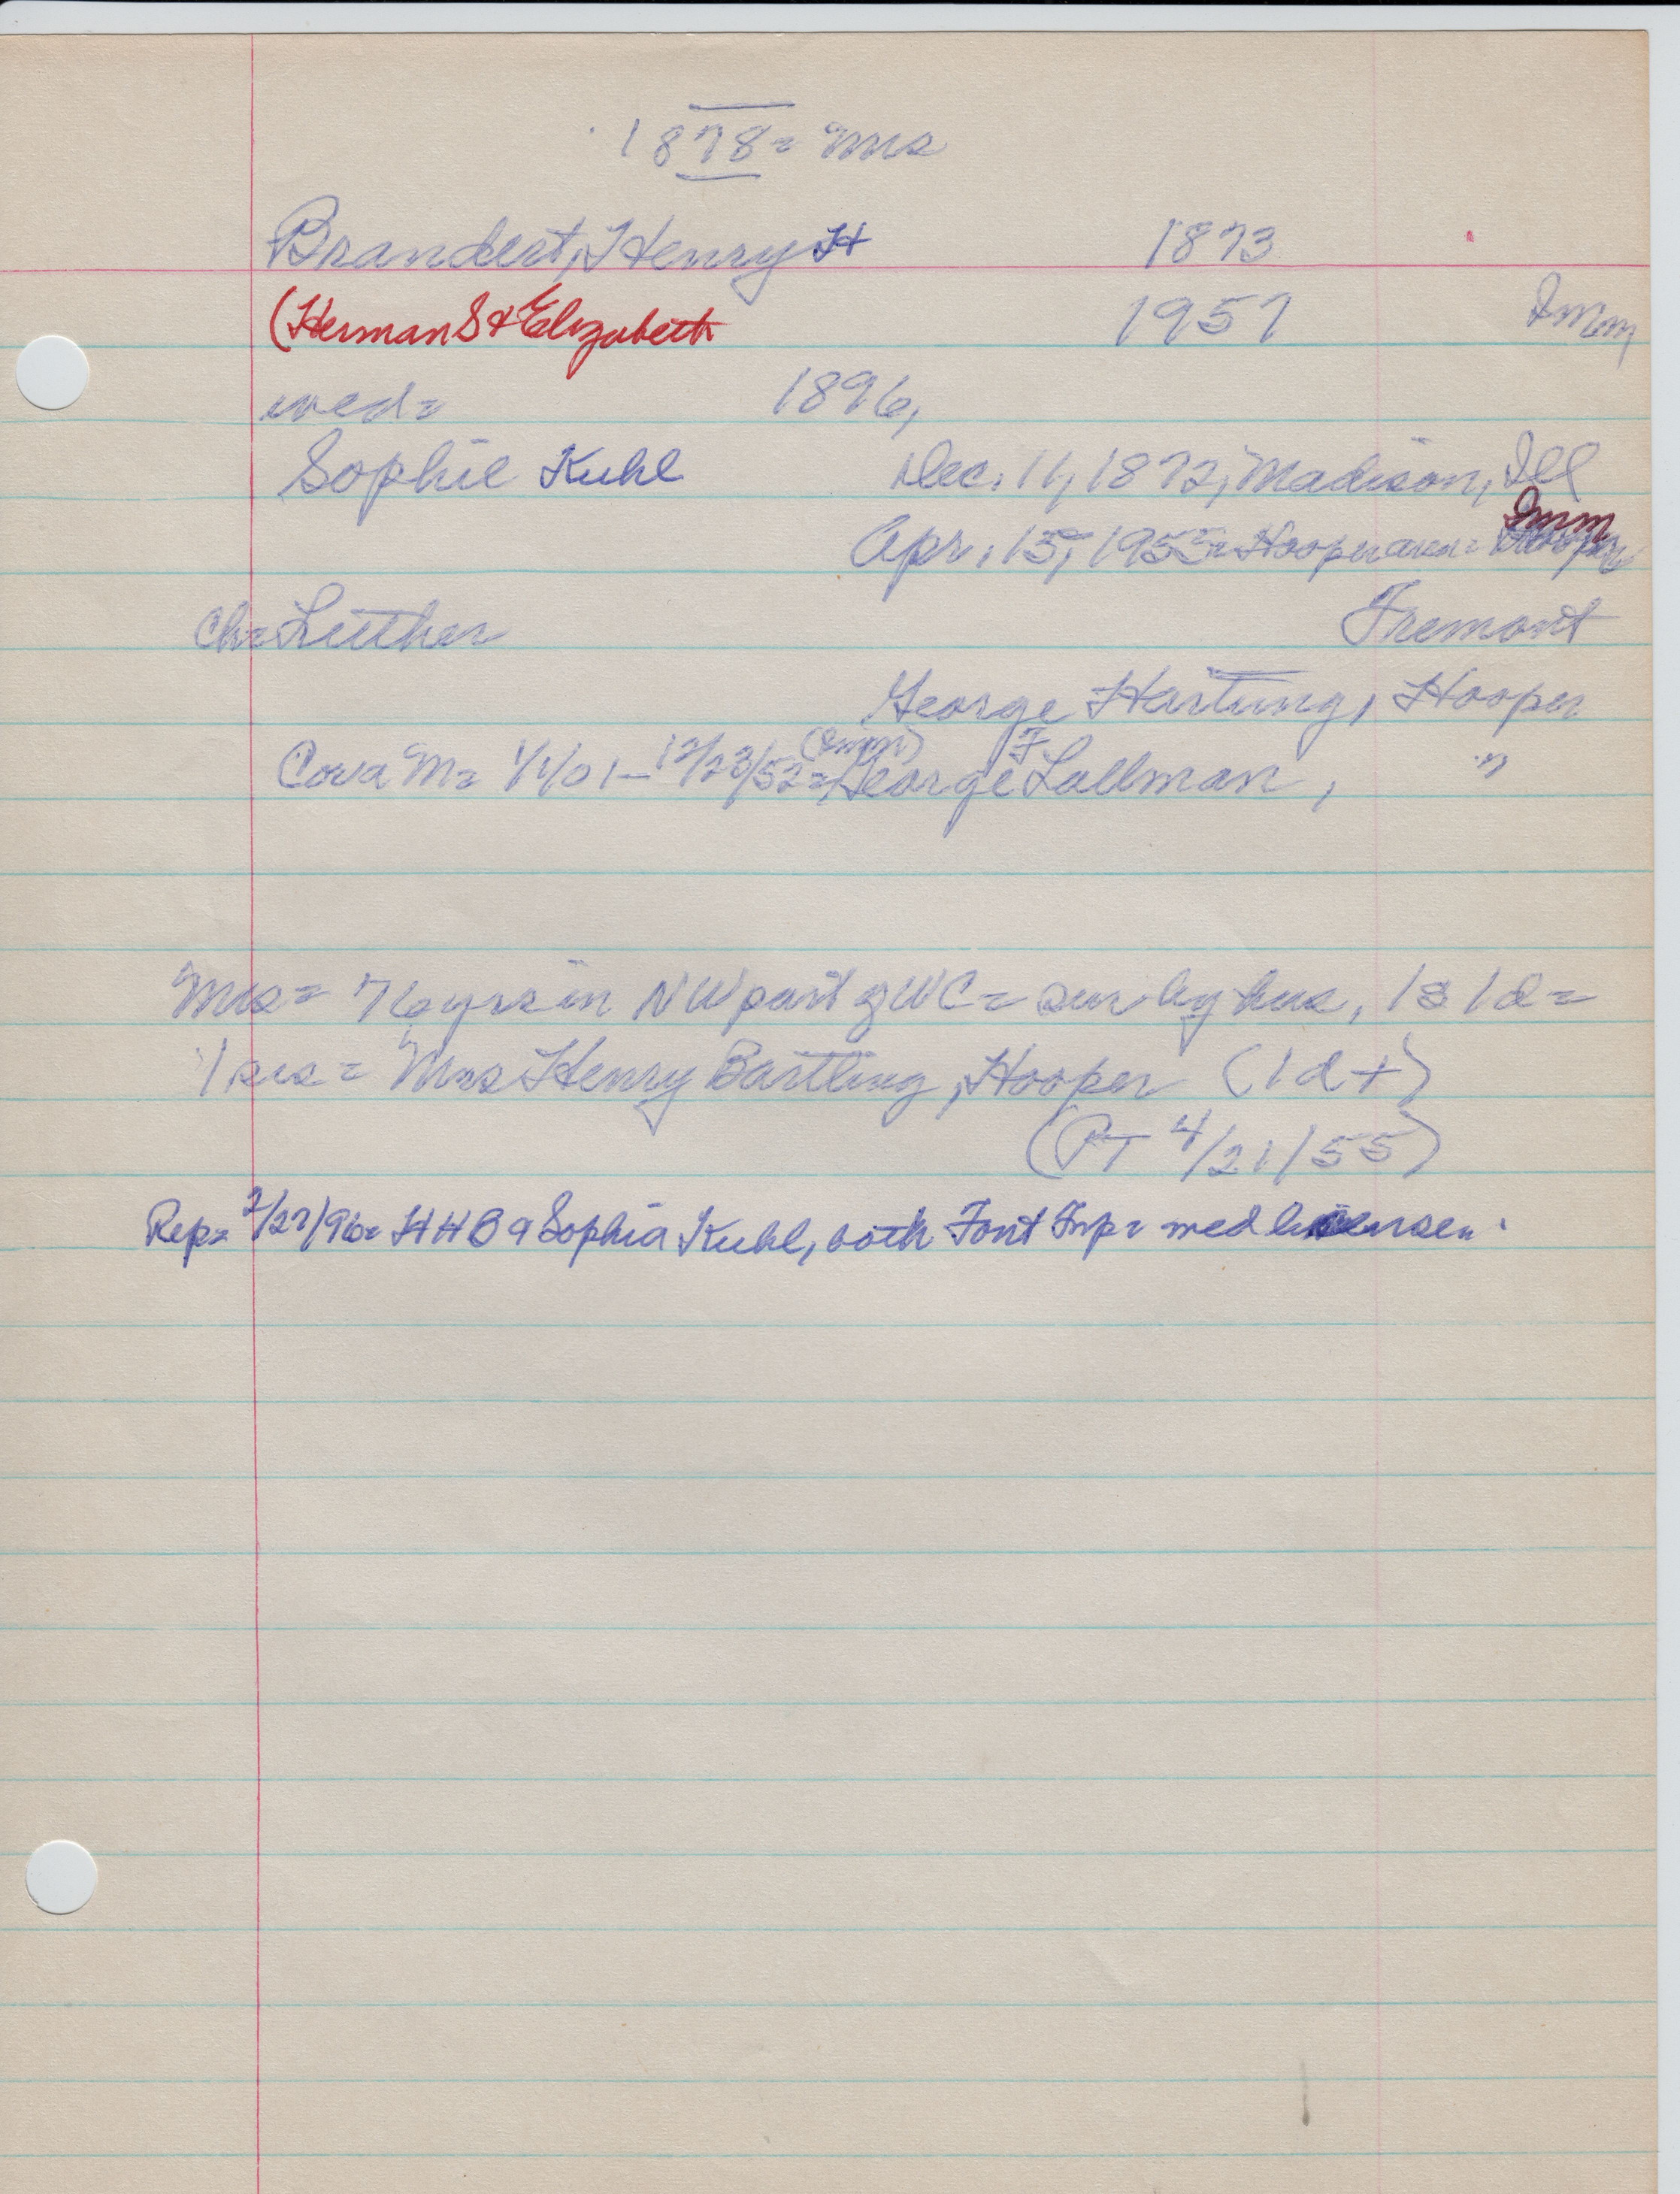 1878 = Mrs
Brandert, Henry H 1873
(Herman S & Elizabeth 1957 Imm
wed = 1896,
Sophie Kuhl Dec. 11, 1872, Madison, Ill
Apr. 15, 1955 = Hooper area = Imm
Ch = Luther Fremont
George Hartung, Hooper
Cora M = 1/1/01 - 12/23/52 = (Imm) George F Lallman, "
Mrs = 76 yrs in NW part of WC = sur by hus, 1s 1d =
1 sis = Mrs Henry Bartling, Hooper (1d+)
(PT 4/21/55)
Rep = 2/27/96 = HHB & Sophia Kuhl, both Font Tnp = wed